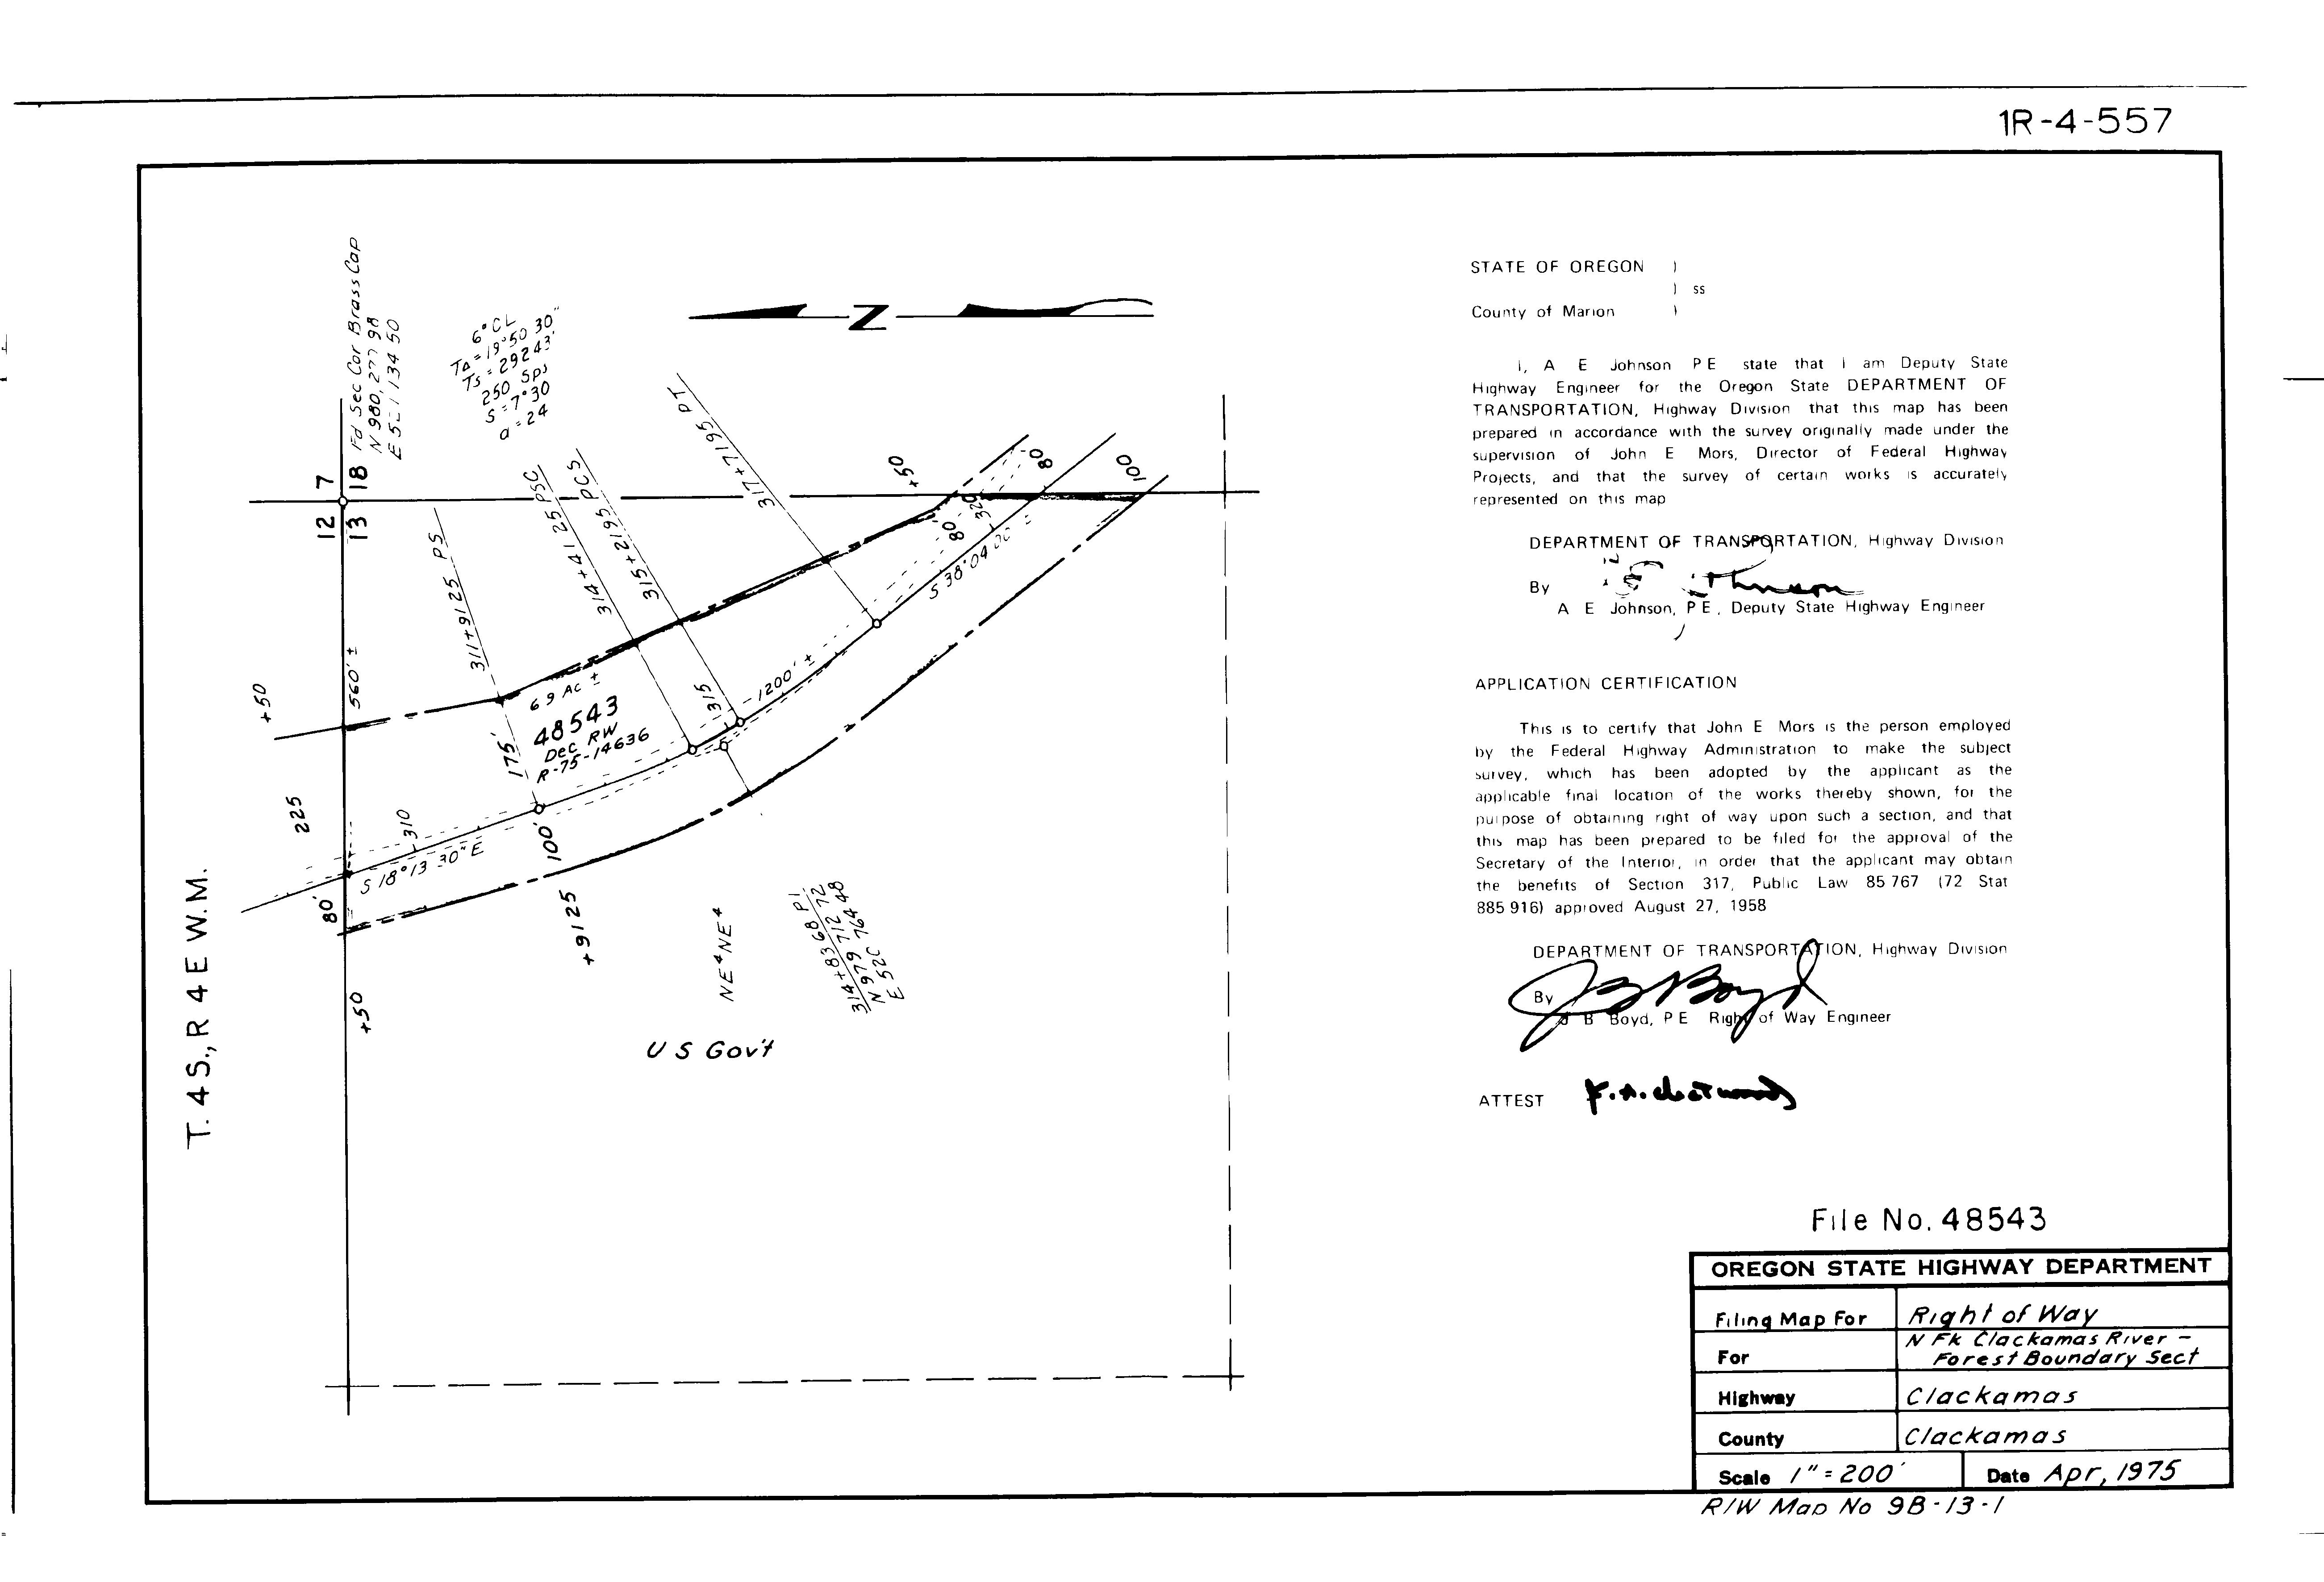 1R-4-557
Fd Sec Cor Brass Cap
N 980,277 98
E 134 50
6° CL
TΔ = 19°50 30"
Ts = 292 43'
250 Sps
S = 7°30
a = 24
Z
7
18
12
13
311+91 25 PS
314+41 25 PSC
315+21 95 PCS
317+71 95 PT
+50
80
100
80'
320
S 38°04
560' ±
+50
6 9 AC ±
48543
Dec RW
R-75-14636
175'
315
1200' ±
225
310
S 18°13 30" E
100'
80'
+91 25
+50
NE⁴NE⁴
314+83 68 PI
N 979 712 72
E 764 48
U S Gov't
T. 4 S., R 4 E W.M.
STATE OF OREGON )
) ss
County of Marion )
I, A E Johnson P E state that I am Deputy State
Highway Engineer for the Oregon State DEPARTMENT OF
TRANSPORTATION, Highway Division that this map has been
prepared in accordance with the survey originally made under the
supervision of John E Mors, Director of Federal Highway
Projects, and that the survey of certain works is accurately
represented on this map
DEPARTMENT OF TRANSPORTATION, Highway Division
By
A E Johnson, P E, Deputy State Highway Engineer
APPLICATION CERTIFICATION
This is to certify that John E Mors is the person employed
by the Federal Highway Administration to make the subject
survey, which has been adopted by the applicant as the
applicable final location of the works thereby shown, for the
purpose of obtaining right of way upon such a section, and that
this map has been prepared to be filed for the approval of the
Secretary of the Interior, in order that the applicant may obtain
the benefits of Section 317, Public Law 85 767 (72 Stat
885 916) approved August 27, 1958
DEPARTMENT OF TRANSPORTATION, Highway Division
By J B Boyd
J B Boyd, P E Right of Way Engineer
ATTEST
File No. 48543
OREGON STATE HIGHWAY DEPARTMENT
Filing Map For Right of Way
For N Fk Clackamas River -
Forest Boundary Sect
Highway Clackamas
County Clackamas
Scale 1" = 200' Date Apr, 1975
R/W Map No 9B-13-1